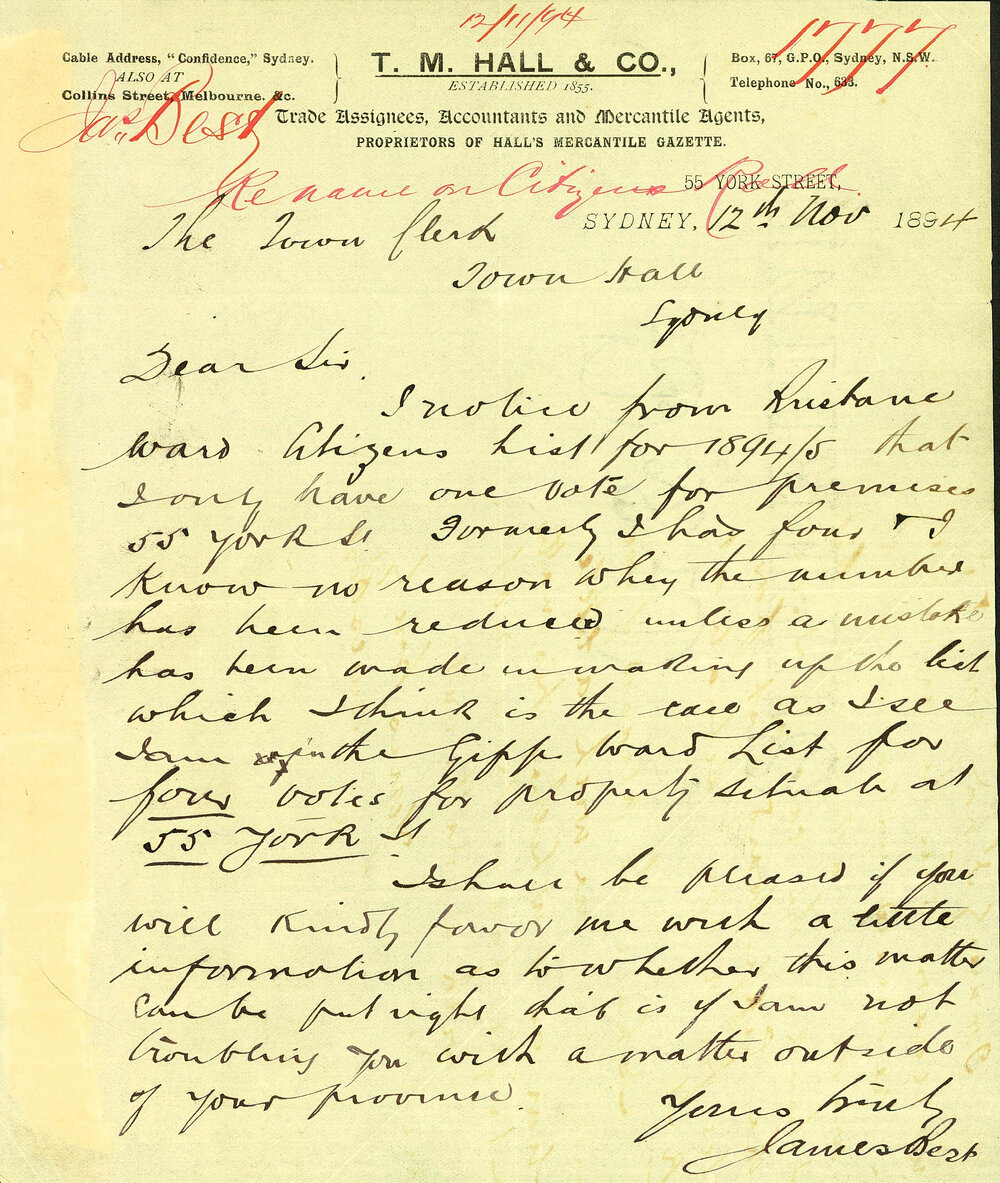 12/11/94
Cable Address, "Confidence," Sydney.
ALSO AT
Collins Street, Melbourne. &c.
T. M. HALL & CO.,
ESTABLISHED 1855.
Box, 67, G.P.O., Sydney, N.S.W.
Telephone No., 633.
1777
Jas Best
Trade Assignees, Accountants and Mercantile Agents,
PROPRIETORS OF HALL'S MERCANTILE GAZETTE.
Re name on Citizens
55 YORK STREET,
SYDNEY, 12th Nov 1894
The Town Clerk
Town Hall
Sydney
Dear Sir
I notice from Brisbane
Ward Citizens List for 1894/5 that
I only have one vote for premises
55 York St Formerly I had four & I
know no reason whey the number
has been reduced unless a mistake
has been made in making up the list
which I think is the case as I see
I am in the Gipps Ward List for
four votes for property situate at
55 York St
I shall be pleased if you
will kindly favor me with a little
information as to whether this matter
can be put right that is if I am not
troubling you with a matter outside
of your province.
Yours truly
James Best